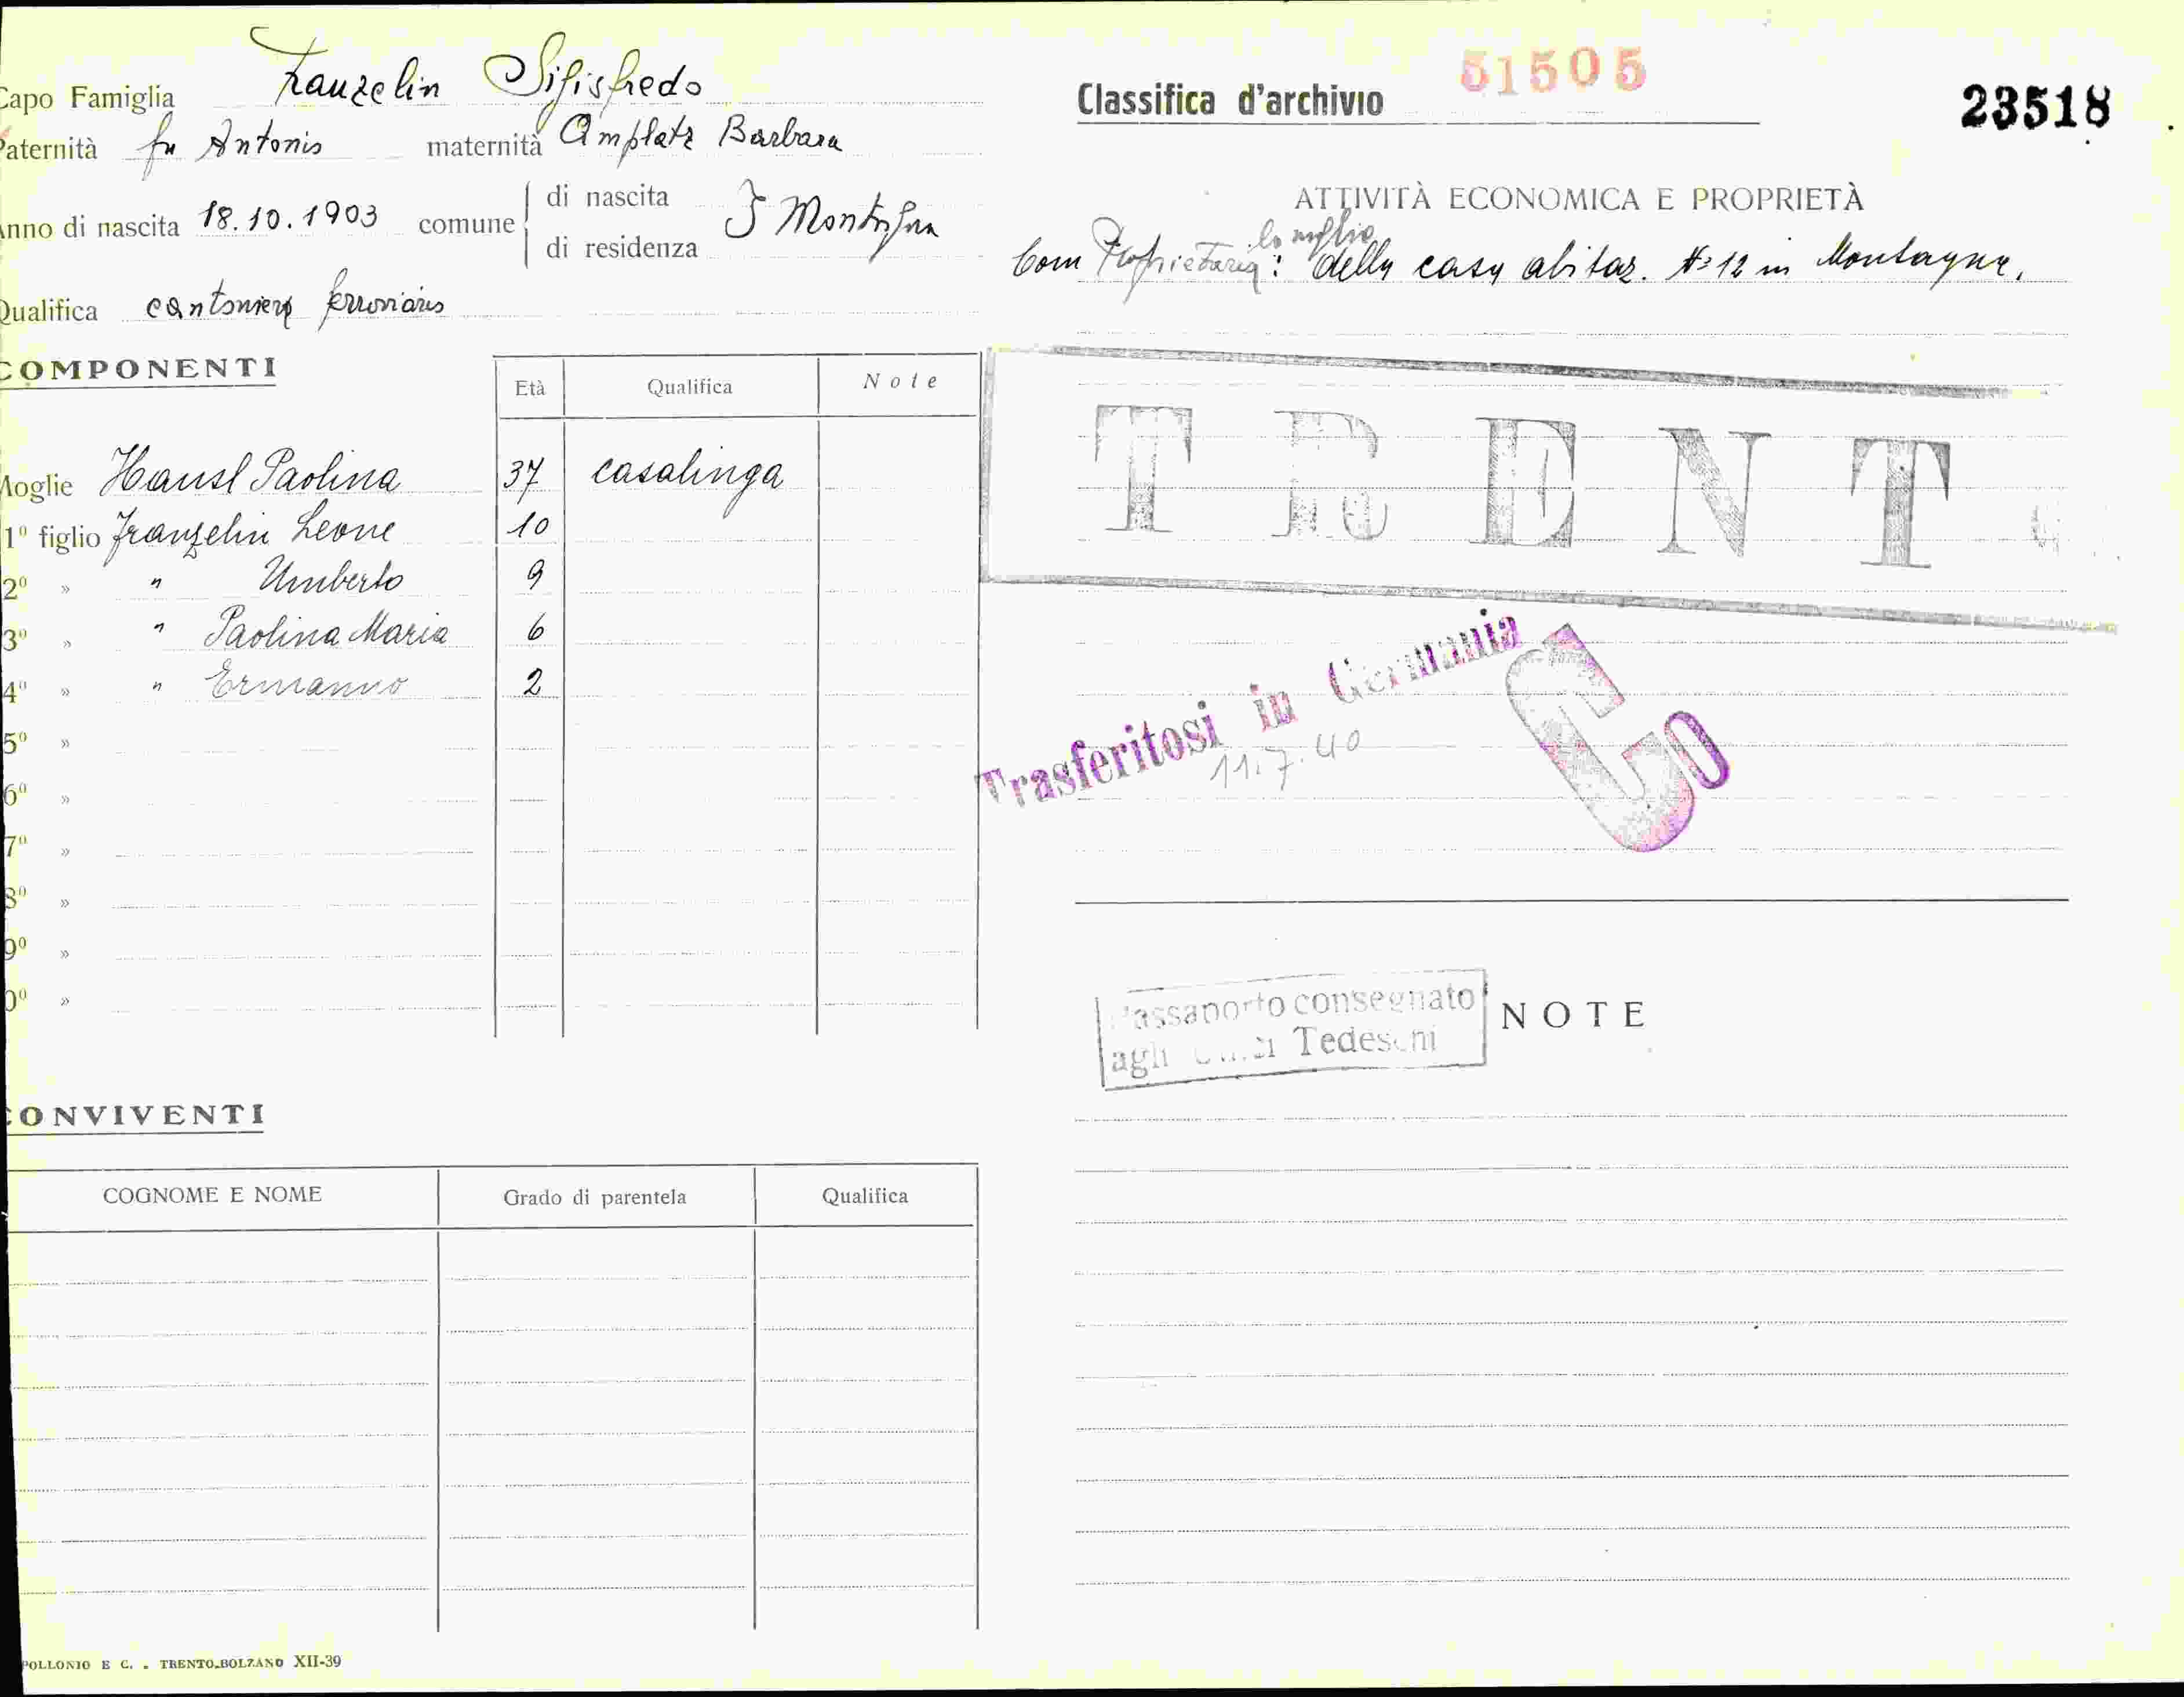 Capo Famiglia Franzelin Sigisfredo
Paternità fu Antonio maternità Amplatz Barbara
Anno di nascita 18.10.1903 comune di nascita
di residenza } Montagna
Qualifica cantoniere ferroviario
COMPONENTI
Età Qualifica Note
Moglie Hausl Paolina 37 casalinga
1º figlio Franzelin Leone 10
2º » " Umberto 9
3º » " Paolina Maria 6
4º » " Ermanno 2
5º »
6º »
7º »
8º »
9º »
0º »
CONVIVENTI
COGNOME E NOME Grado di parentela Qualifica
POLLONIO E C. - TRENTO-BOLZANO XII-39
Classifica d'archivio 51505
23518
ATTIVITÀ ECONOMICA E PROPRIETÀ
la moglie
Com Proprietaria: della casa abitaz. Nº 12 in Montagna.
TRENTO
Trasferitosi in Germania
11.7.40
Co
Passaporto consegnato
agli Tedeschi
NOTE